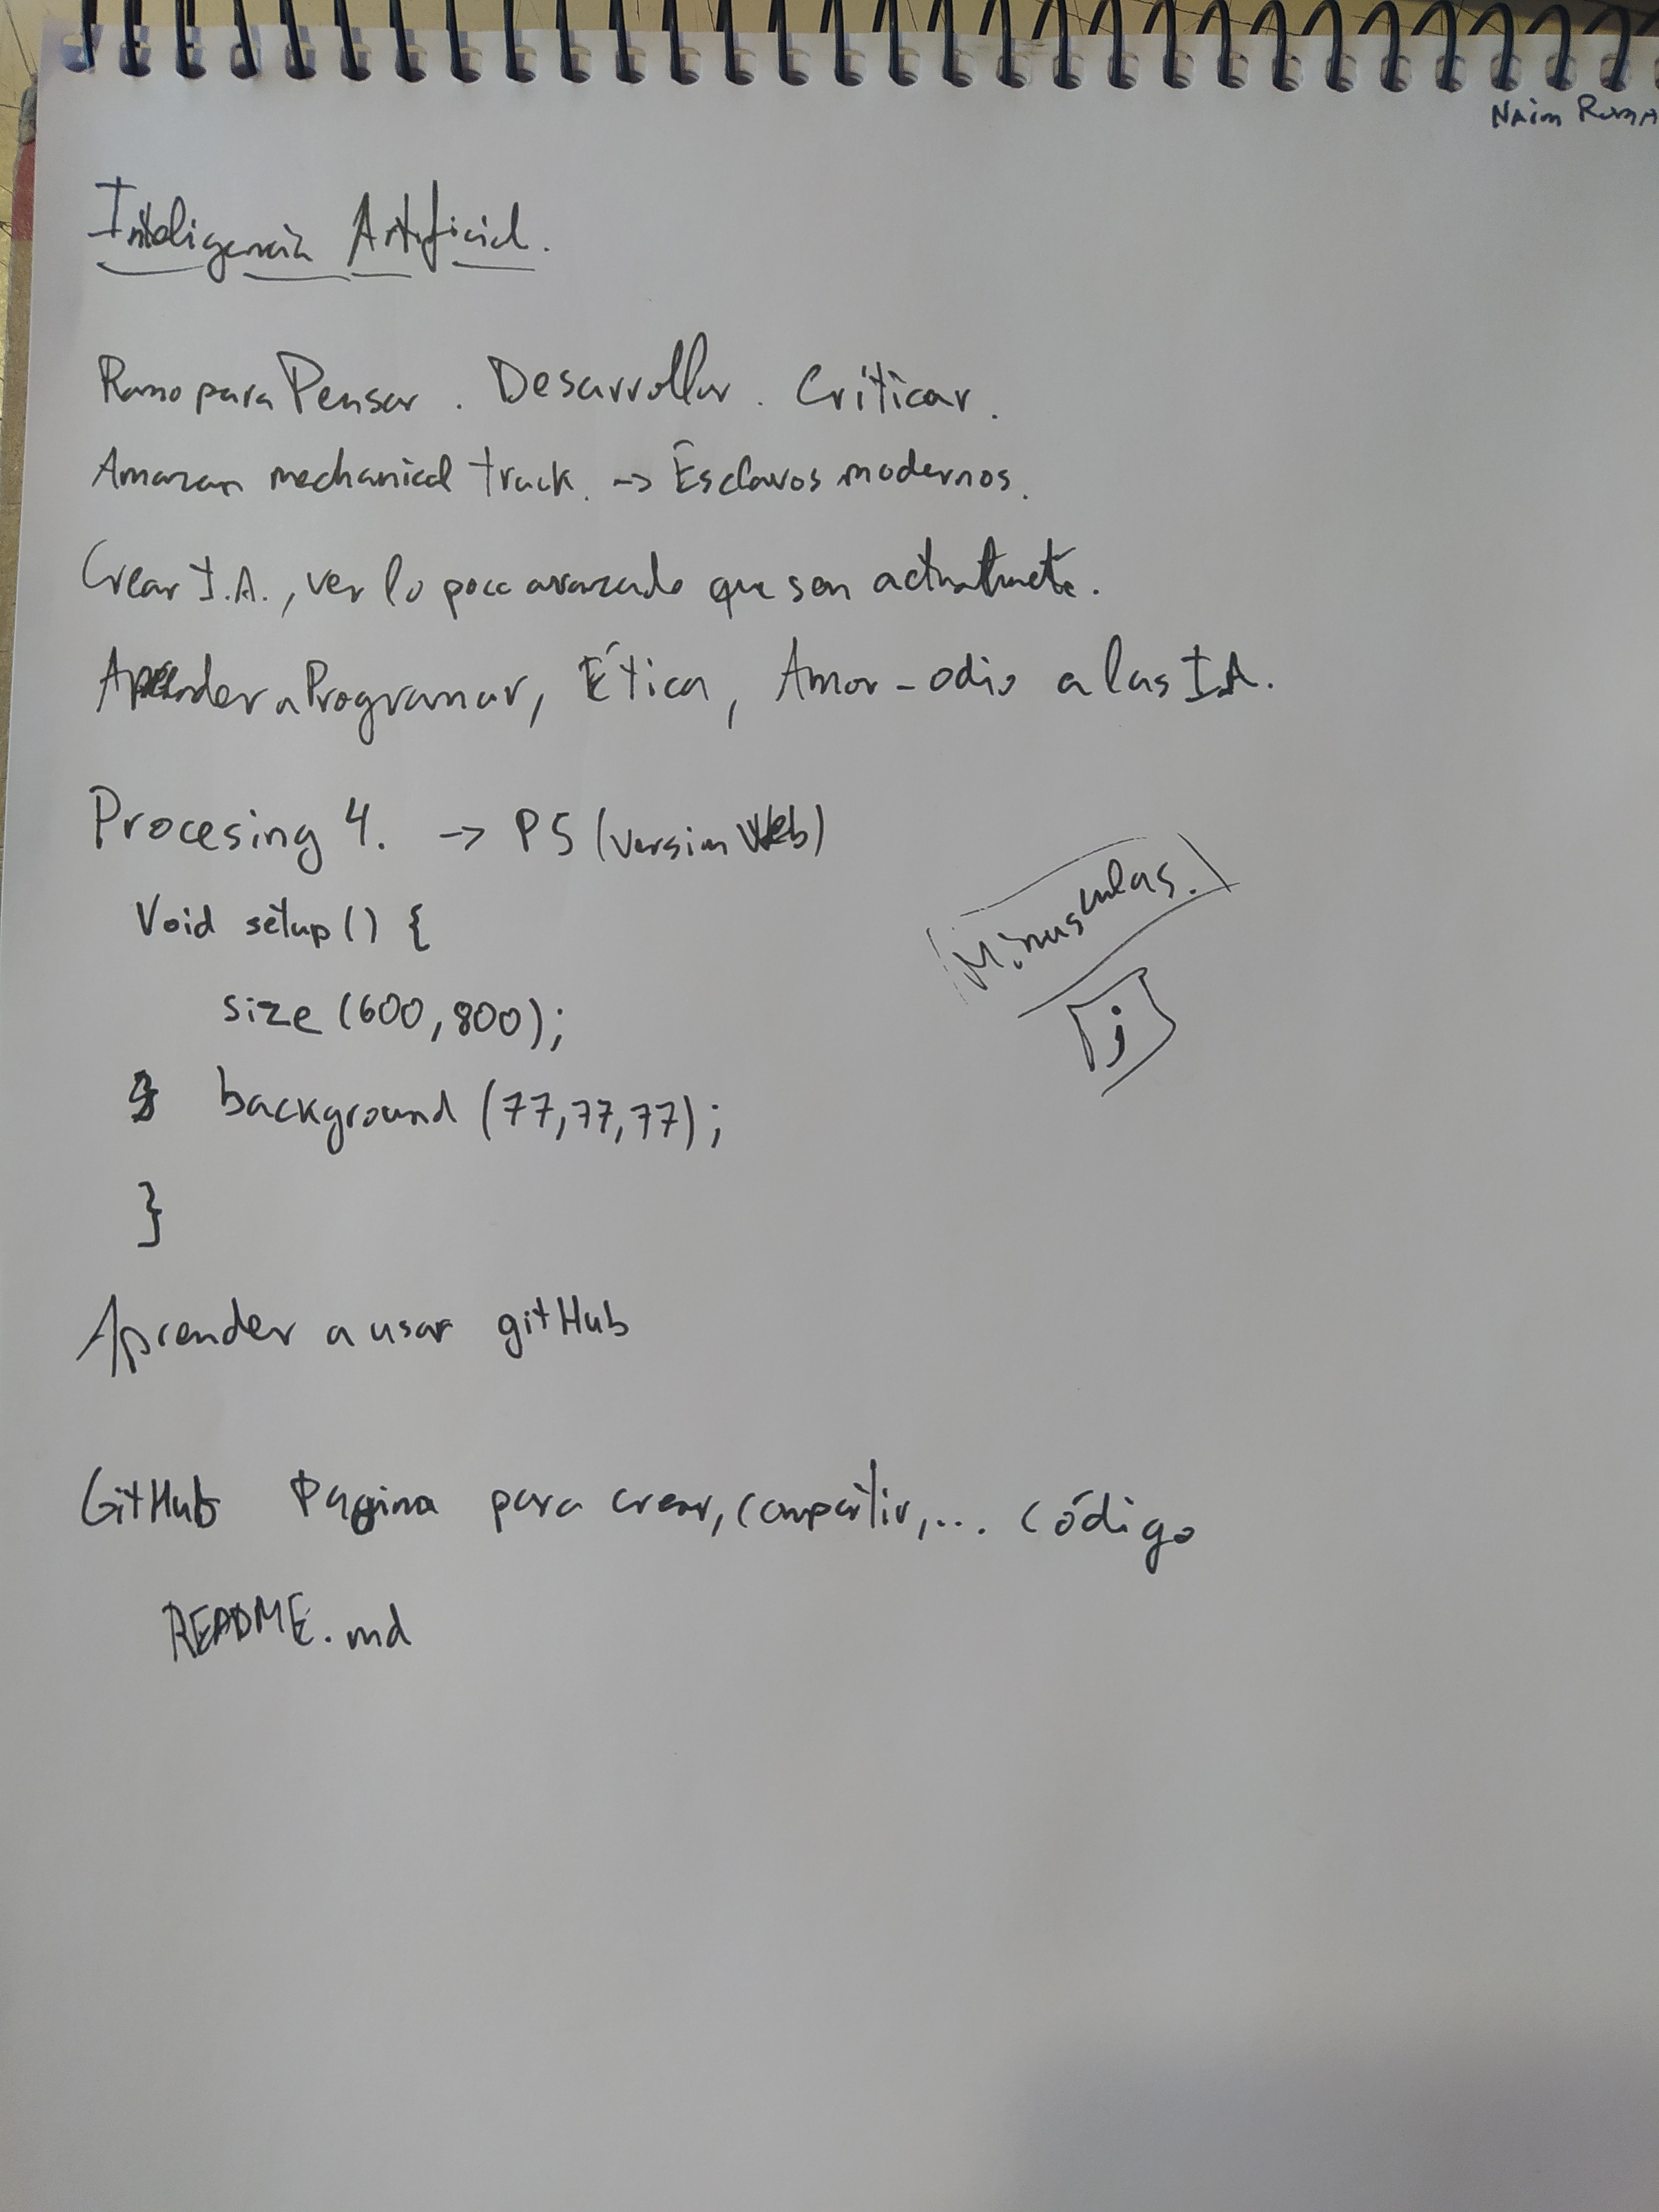 Naim Roma
Inteligencia Artificial.
Ramo para Pensar. Desarrollar. Criticar.
Amazon mechanical track. -> Esclavos modernos.
Crear I.A., ver lo poco avanzado que son actualmente.
Aprender a Programar, Ética, Amor-odio a las IA.
Procesing 4. -> P5 (version Web)
Void setup() {
size (600,800);
background (77,77,77);
}
Minusculas.
;
Aprender a usar gitHub
GitHub Pagina para crear, compartir,... código
README.md